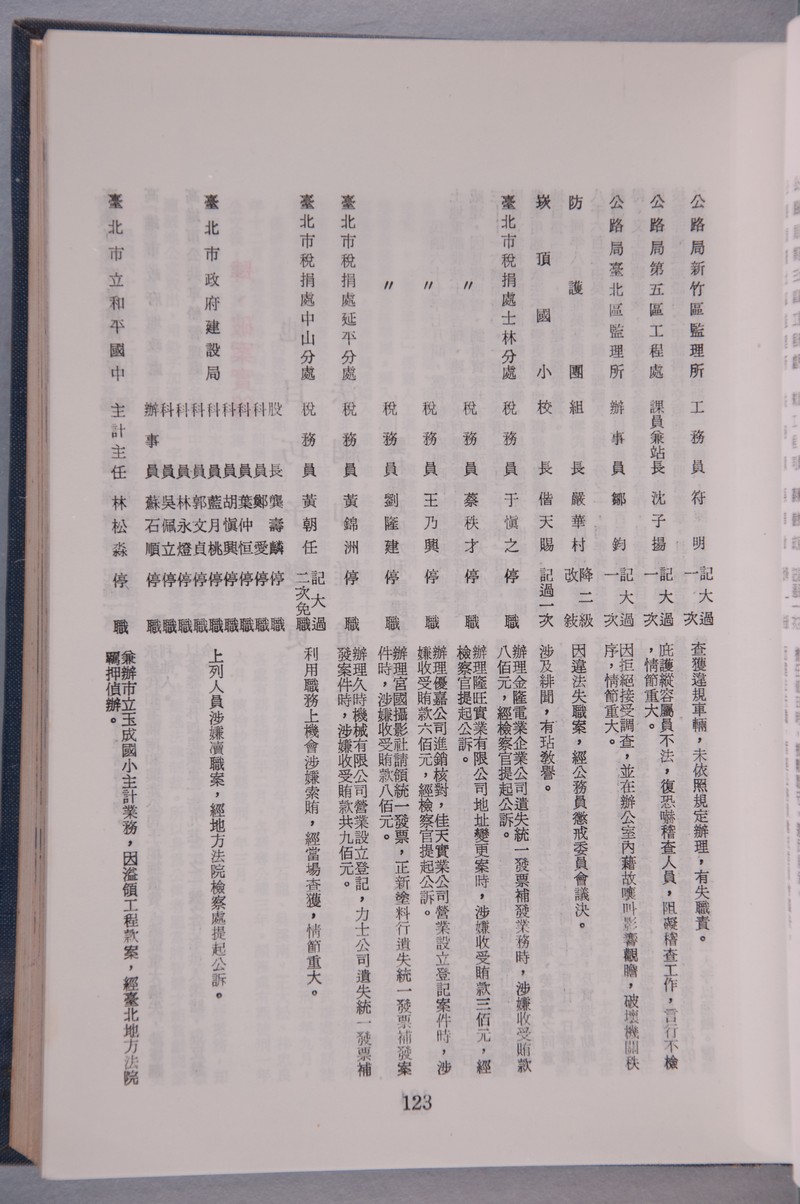 公路局新竹區監理所 工務員 符明 記大過一次 查獲違規車輛，未依照規定辦理，有失職責。
公路局第五區工程處 課員兼站長 沈子揚 記大過一次 庇護縱容屬員不法，復恐嚇稽查人員，阻礙稽查工作，言行不檢
，情節重大。
公路局臺北區監理所 辦事員 鄒鈞 記大過一次 因拒絕接受調查，並在辦公室內藉故嚷叫影響觀瞻，破壞機關秩
序，情節重大。
防護團 組長 嚴華村 降二級改敍 因違法失職案，經公務員懲戒委員會議決。
崁頂國小 校長 偕天賜 記過一次 涉及緋聞，有玷教譽。
臺北市稅捐處士林分處 稅務員 于愼之 停職 辦理金隆電業企業公司遺失統一發票補發業務時，涉嫌收受賄款
八佰元，經檢察官提起公訴。
〃 稅務員 蔡秩才 停職 辦理隆旺實業有限公司地址變更案時，涉嫌收受賄款三佰元，經
檢察官提起公訴。
〃 稅務員 王乃興 停職 辦理優嘉公司進銷核對，佳天實業公司營業設立登記案件時，涉
嫌收受賄款六佰元，經檢察官提起公訴。
〃 稅務員 劉隆建 停職 辦理宮國攝影社請領統一發票，正新塗料行遺失統一發票補發案
件時，涉嫌收受賄款八佰元。
臺北市稅捐處延平分處 稅務員 黃錦洲 停職 辦理久時機械有限公司營業設立登記，力士公司遺失統一發票補
發案件時，涉嫌收受賄款共九佰元。
臺北市稅捐處中山分處 稅務員 黃朝任 記大過二次免職 利用職務上機會涉嫌索賄，經當場查獲，情節重大。
股長 龔壽麟 停職
科員 鄭愛 停職
科員 葉仲恒 停職
科員 胡愼興 停職
臺北市政府建設局 科員 藍月桃 停職 上列人員涉嫌瀆職案，經地方法院檢察處提起公訴。
科員 郭文貞 停職
科員 林永燈 停職
科員 吳佩立 停職
辦事員 蘇石順 停職
臺北市立和平國中 主計主任 林松淼 停職 兼辦市立玉成國小主計業務，因溢領工程款案，經臺北地方法院
羈押偵辦。
123